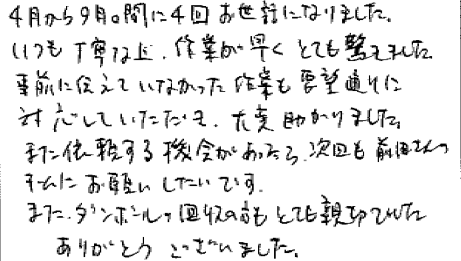 4月から9月の間に4回お世話になりました。
いつも丁寧な上、作業が早くとても驚きました
事前に伝えていなかった作業も要望通りに
対応していただき、大変助かりました。
また依頼する機会があったら、次回も前田さんの
チームにお願いしたいです。
また、ダンボールの回収の方もとても親切でした
ありがとうございました。